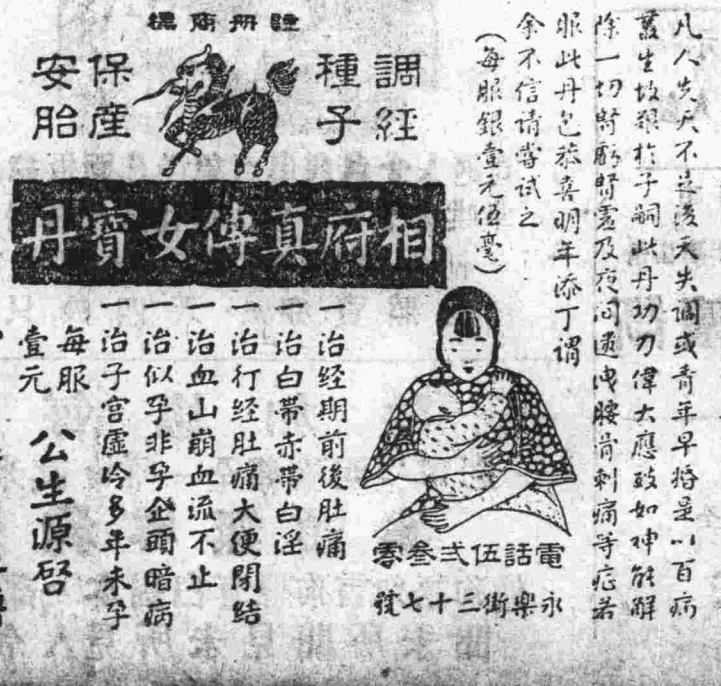 凡人先天不足後天失调或青年早婚是以百病
叢生故艱於子嗣此丹功力偉大應效如神能解
除一切腎虧腎寒及夜间遺洩腰骨刺痛等症若
服此丹包恭喜明年添丁谓
余不信请嘗试之
(每服銀壹元伍毫)
註册商標
調經
種子
保産
安胎
相府真傳女寶丹
一治经期前後肚痛
一治白带赤带白淫
一治行经肚痛大便閉结
一治血山崩血流不止
一治似孕非孕企頭暗病
一治子宫虚冷多年未孕
每服
壹元
公生源啓
電話伍弍叁零
永樂街三十七號